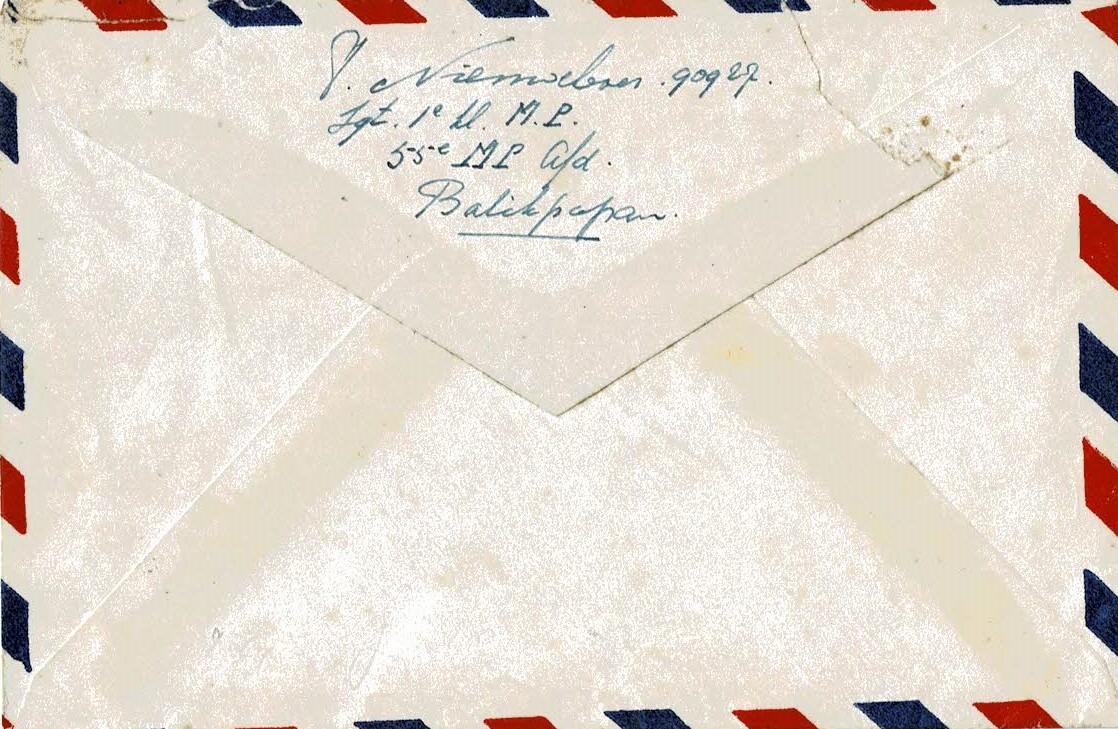 J. Niemoeller. 90927.
Sgt. 1e kl. M.P.
55e MP Afd.
Balikpapan.